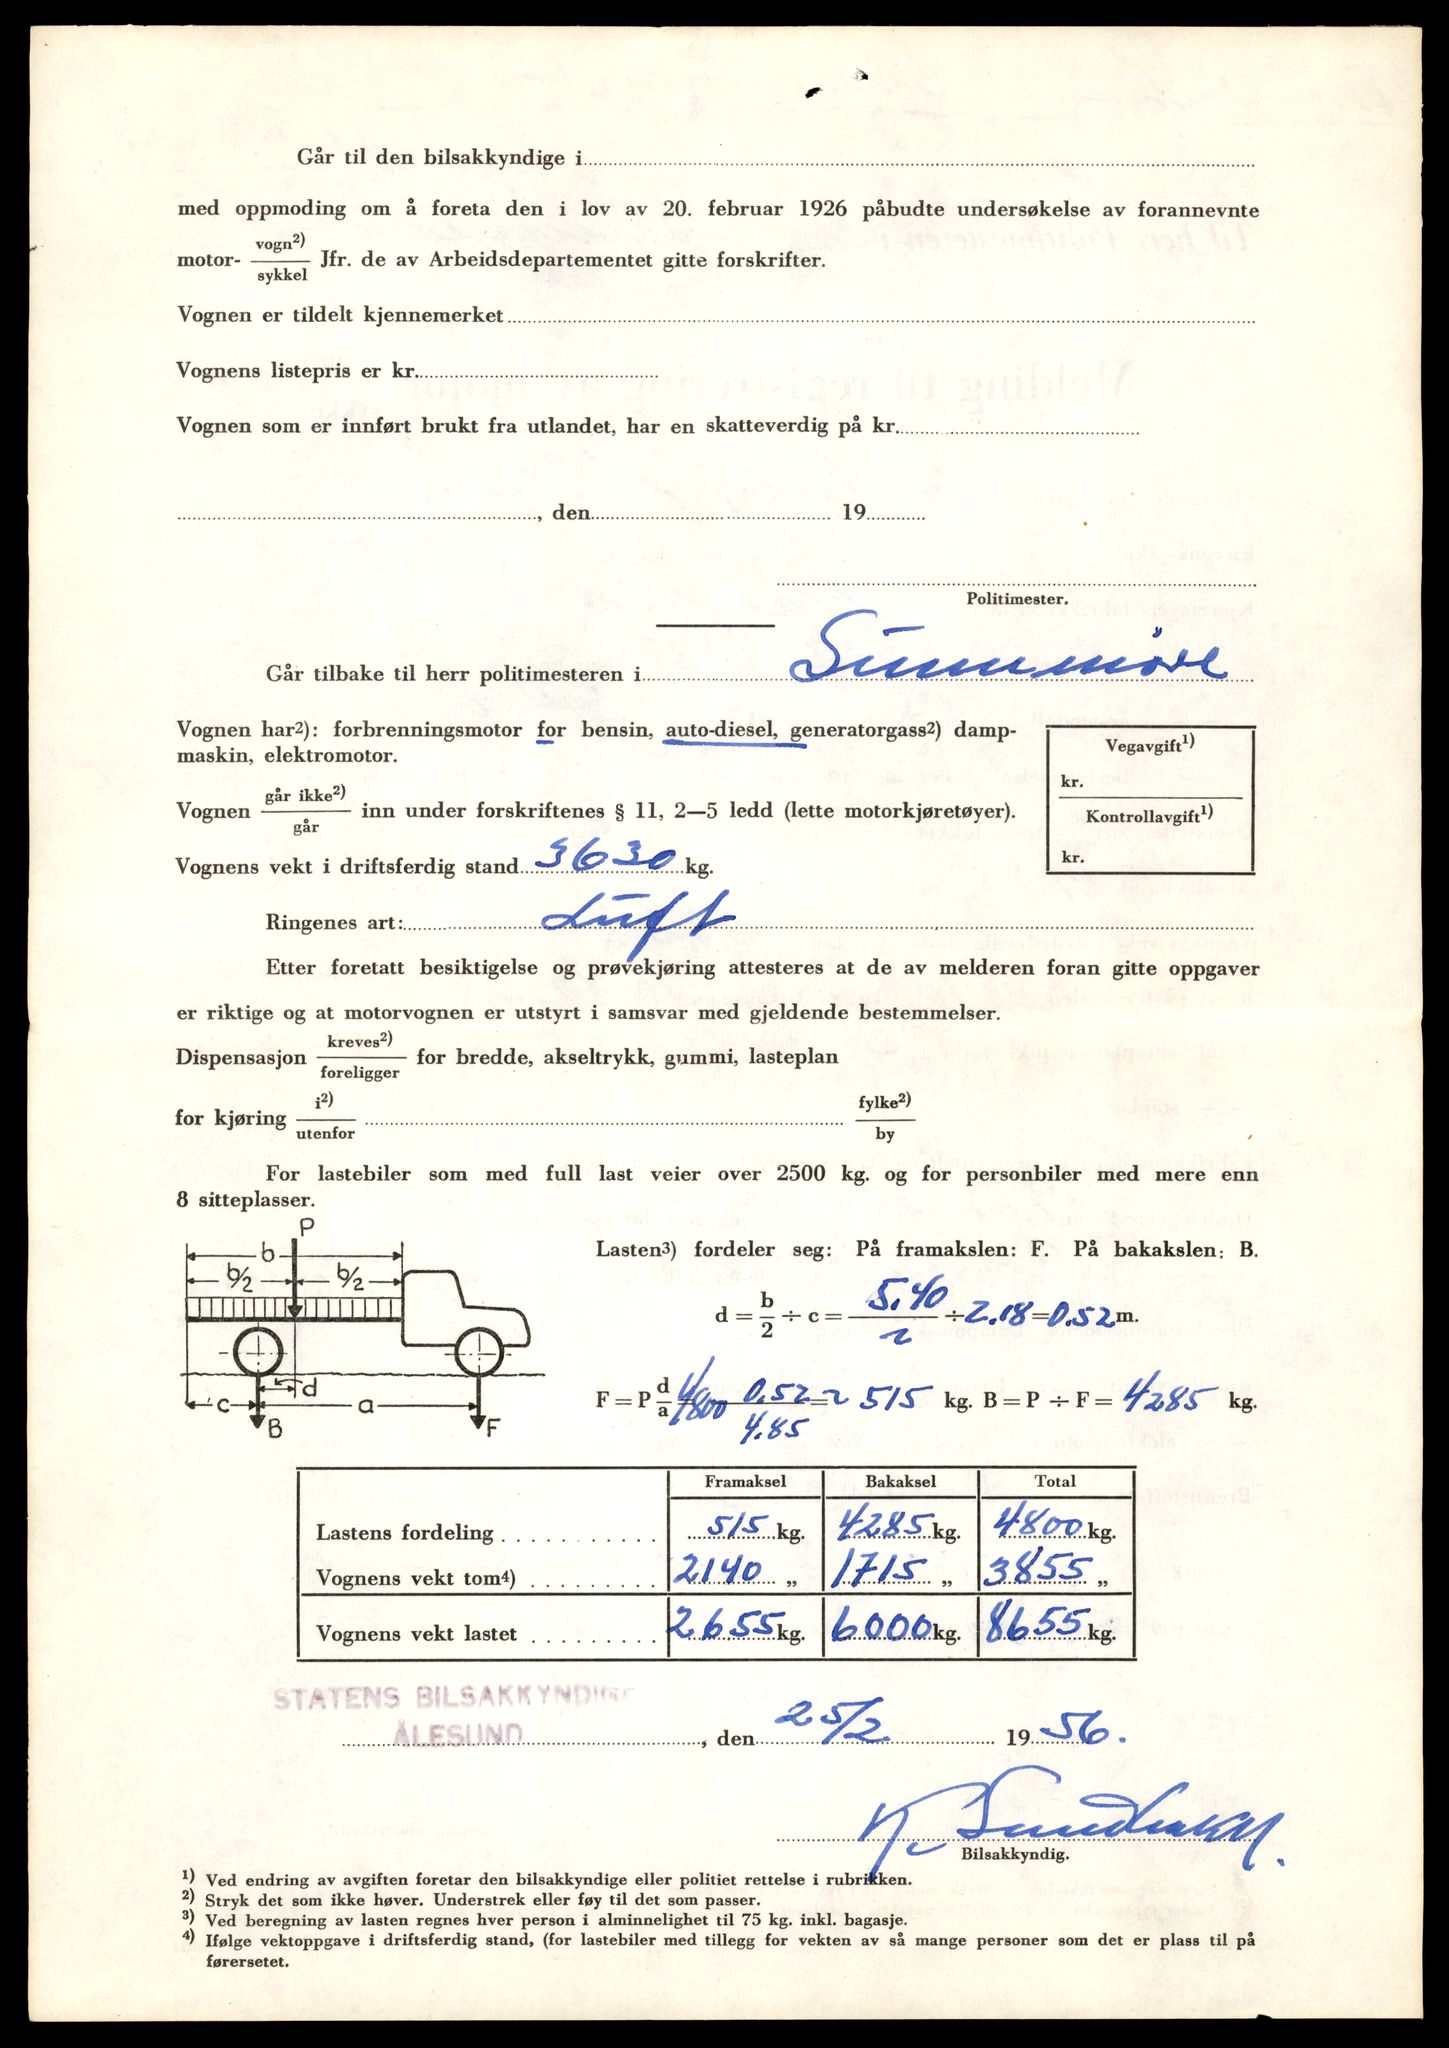 Går til den bilsakkyndige i
med oppmoding om å foreta den i lov av 20. februar 1926 påbudte undersøkelse av forannevnte
motor- vogn2) / sykkel Jfr. de av Arbeidsdepartementet gitte forskrifter.
Vognen er tildelt kjennemerket
Vognens listepris er kr.
Vognen som er innført brukt fra utlandet, har en skatteverdig på kr.
, den 19
Politimester.
Går tilbake til herr politimesteren i Sunnmöre
Vognen har2): forbrenningsmotor for bensin, auto-diesel, generatorgass2) damp-
maskin, elektromotor.
Vegavgift1)
kr.
Kontrollavgift1)
kr.
Vognen går ikke2) / går inn under forskriftenes § 11, 2—5 ledd (lette motorkjøretøyer).
Vognens vekt i driftsferdig stand 3630 kg.
Ringenes art: Luft
Etter foretatt besiktigelse og prøvekjøring attesteres at de av melderen foran gitte oppgaver
er riktige og at motorvognen er utstyrt i samsvar med gjeldende bestemmelser.
Dispensasjon kreves2) / foreligger for bredde, akseltrykk, gummi, lasteplan
for kjøring i2) / utenfor fylke2) / by
For lastebiler som med full last veier over 2500 kg. og for personbiler med mere enn
8 sitteplasser.
P
b
b/2 b/2
d
c a
B F
Lasten3) fordeler seg: På framakslen: F. På bakakslen: B.
d = b/2 ÷ c = 5.40/2 ÷ 2.18 = 0.52 m.
F = P d/a = 4800 0.52/4.85 = ~ 515 kg. B = P ÷ F = 4285 kg.
Framaksel Bakaksel Total
Lastens fordeling 515 kg. 4285 kg. 4800 kg.
Vognens vekt tom4) 2140 „ 1715 „ 3855 „
Vognens vekt lastet 2655 kg. 6000 kg. 8655 kg.
STATENS BILSAKKYNDIGE
ÅLESUND , den 25/2 1956.
Bilsakkyndig.
1) Ved endring av avgiften foretar den bilsakkyndige eller politiet rettelse i rubrikken.
2) Stryk det som ikke høver. Understrek eller føy til det som passer.
3) Ved beregning av lasten regnes hver person i alminnelighet til 75 kg. inkl. bagasje.
4) Ifølge vektoppgave i driftsferdig stand, (for lastebiler med tillegg for vekten av så mange personer som det er plass til på
førersetet.